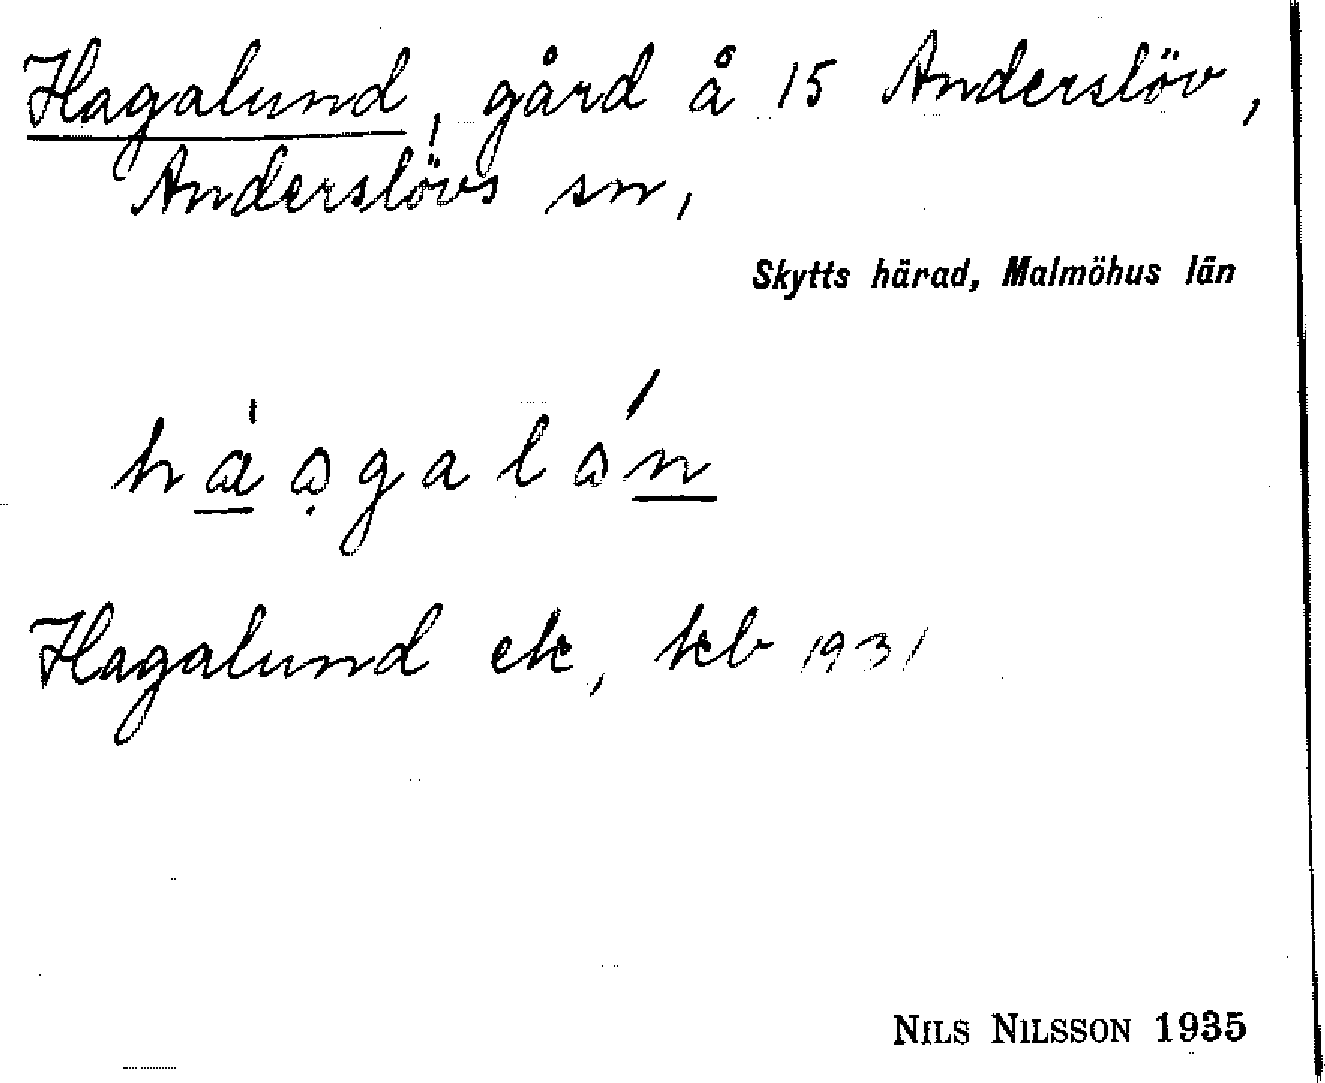 Hagalund, gård å 15 Anderslöv,
Anderslövs sn,
Skytts härad, Malmöhus län
Hagalund ek, kb 1931
NILS NILSSON 1935